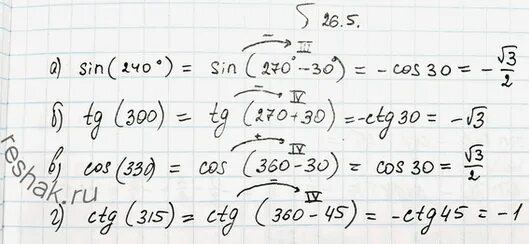 § 26.5.
а) sin(240°) = sin(270° − 30°) = − cos30 = − √3/2
− III
б) tg(300) = tg(270+30) = −ctg30 = −√3
− IV
в) cos(330) = cos(360−30) = cos30 = √3/2
+ IV
г) ctg(315) = ctg(360−45) = −ctg45 = −1
− IV
reshak.ru